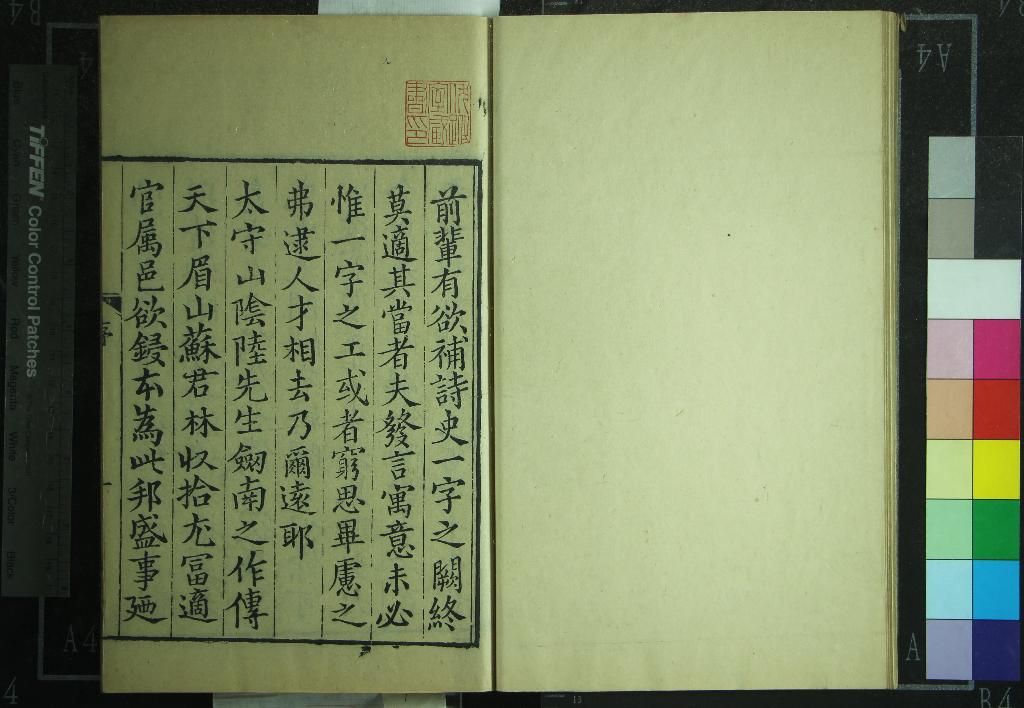 前輩有欲補詩史一字之闕終
莫適其當者夫發言寓意未必
惟一字之工或者窮思畢慮之
弗逮人才相去乃爾遠耶
太守山陰陸先生劔南之作傳
天下眉山蘇君林収拾尤冨適
官属邑欲鋟本為此邦盛事廼
序
TIFFEN Color Control Patches
Blue
Green
Yellow
Red
Magenta
White
3/Color
Black
B4
A4
4
A4
A
B4
13